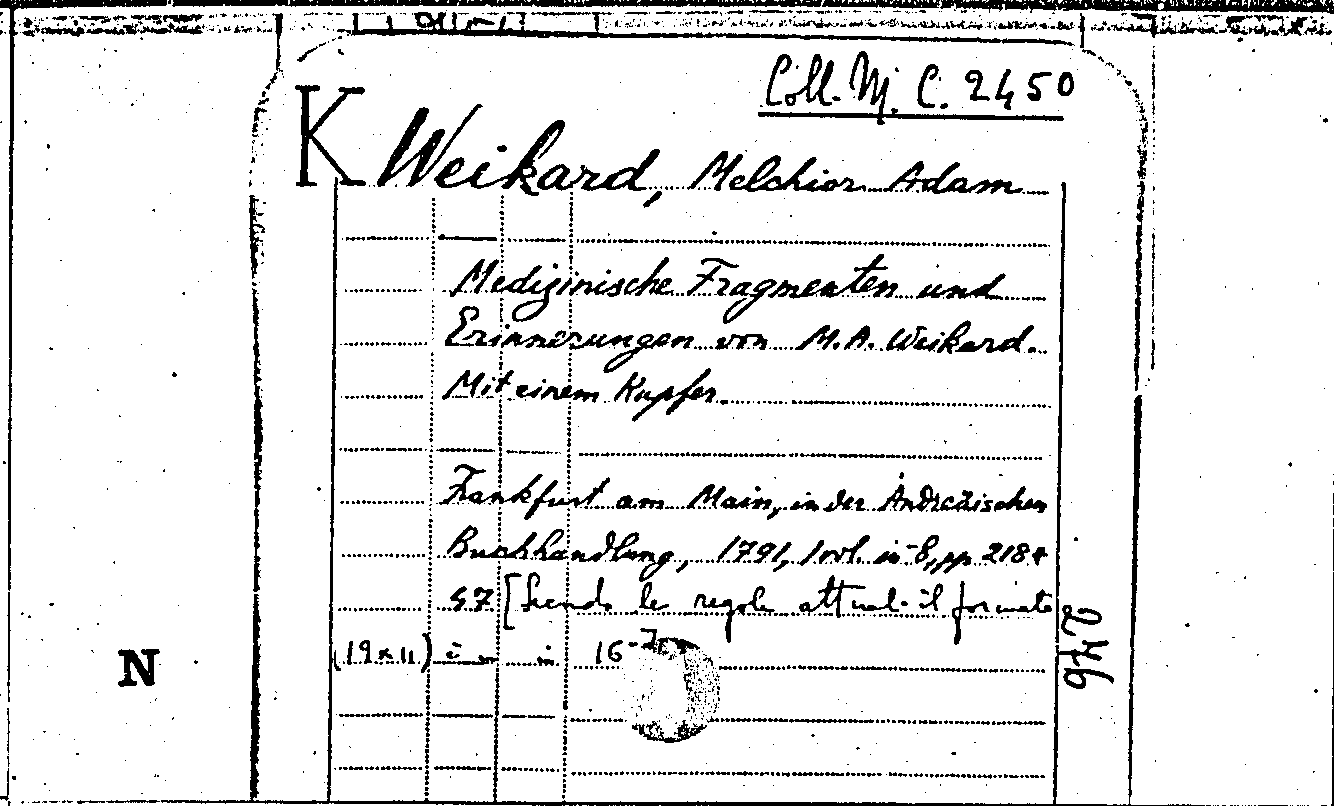 Coll. M. C. 2450
K Weikard, Melchior Adam
Medizinische Fragmenten und
Erinnerungen von M.A. Weikard.
Mit einem Kupfer.
Frankfurt am Main, in der Andreäischen
Buchhandlung, 1791, 1 vol. in-8, pp 218+
47 [Secondo le regole attuali il formato
(19x11) è in 16-]
N
2746